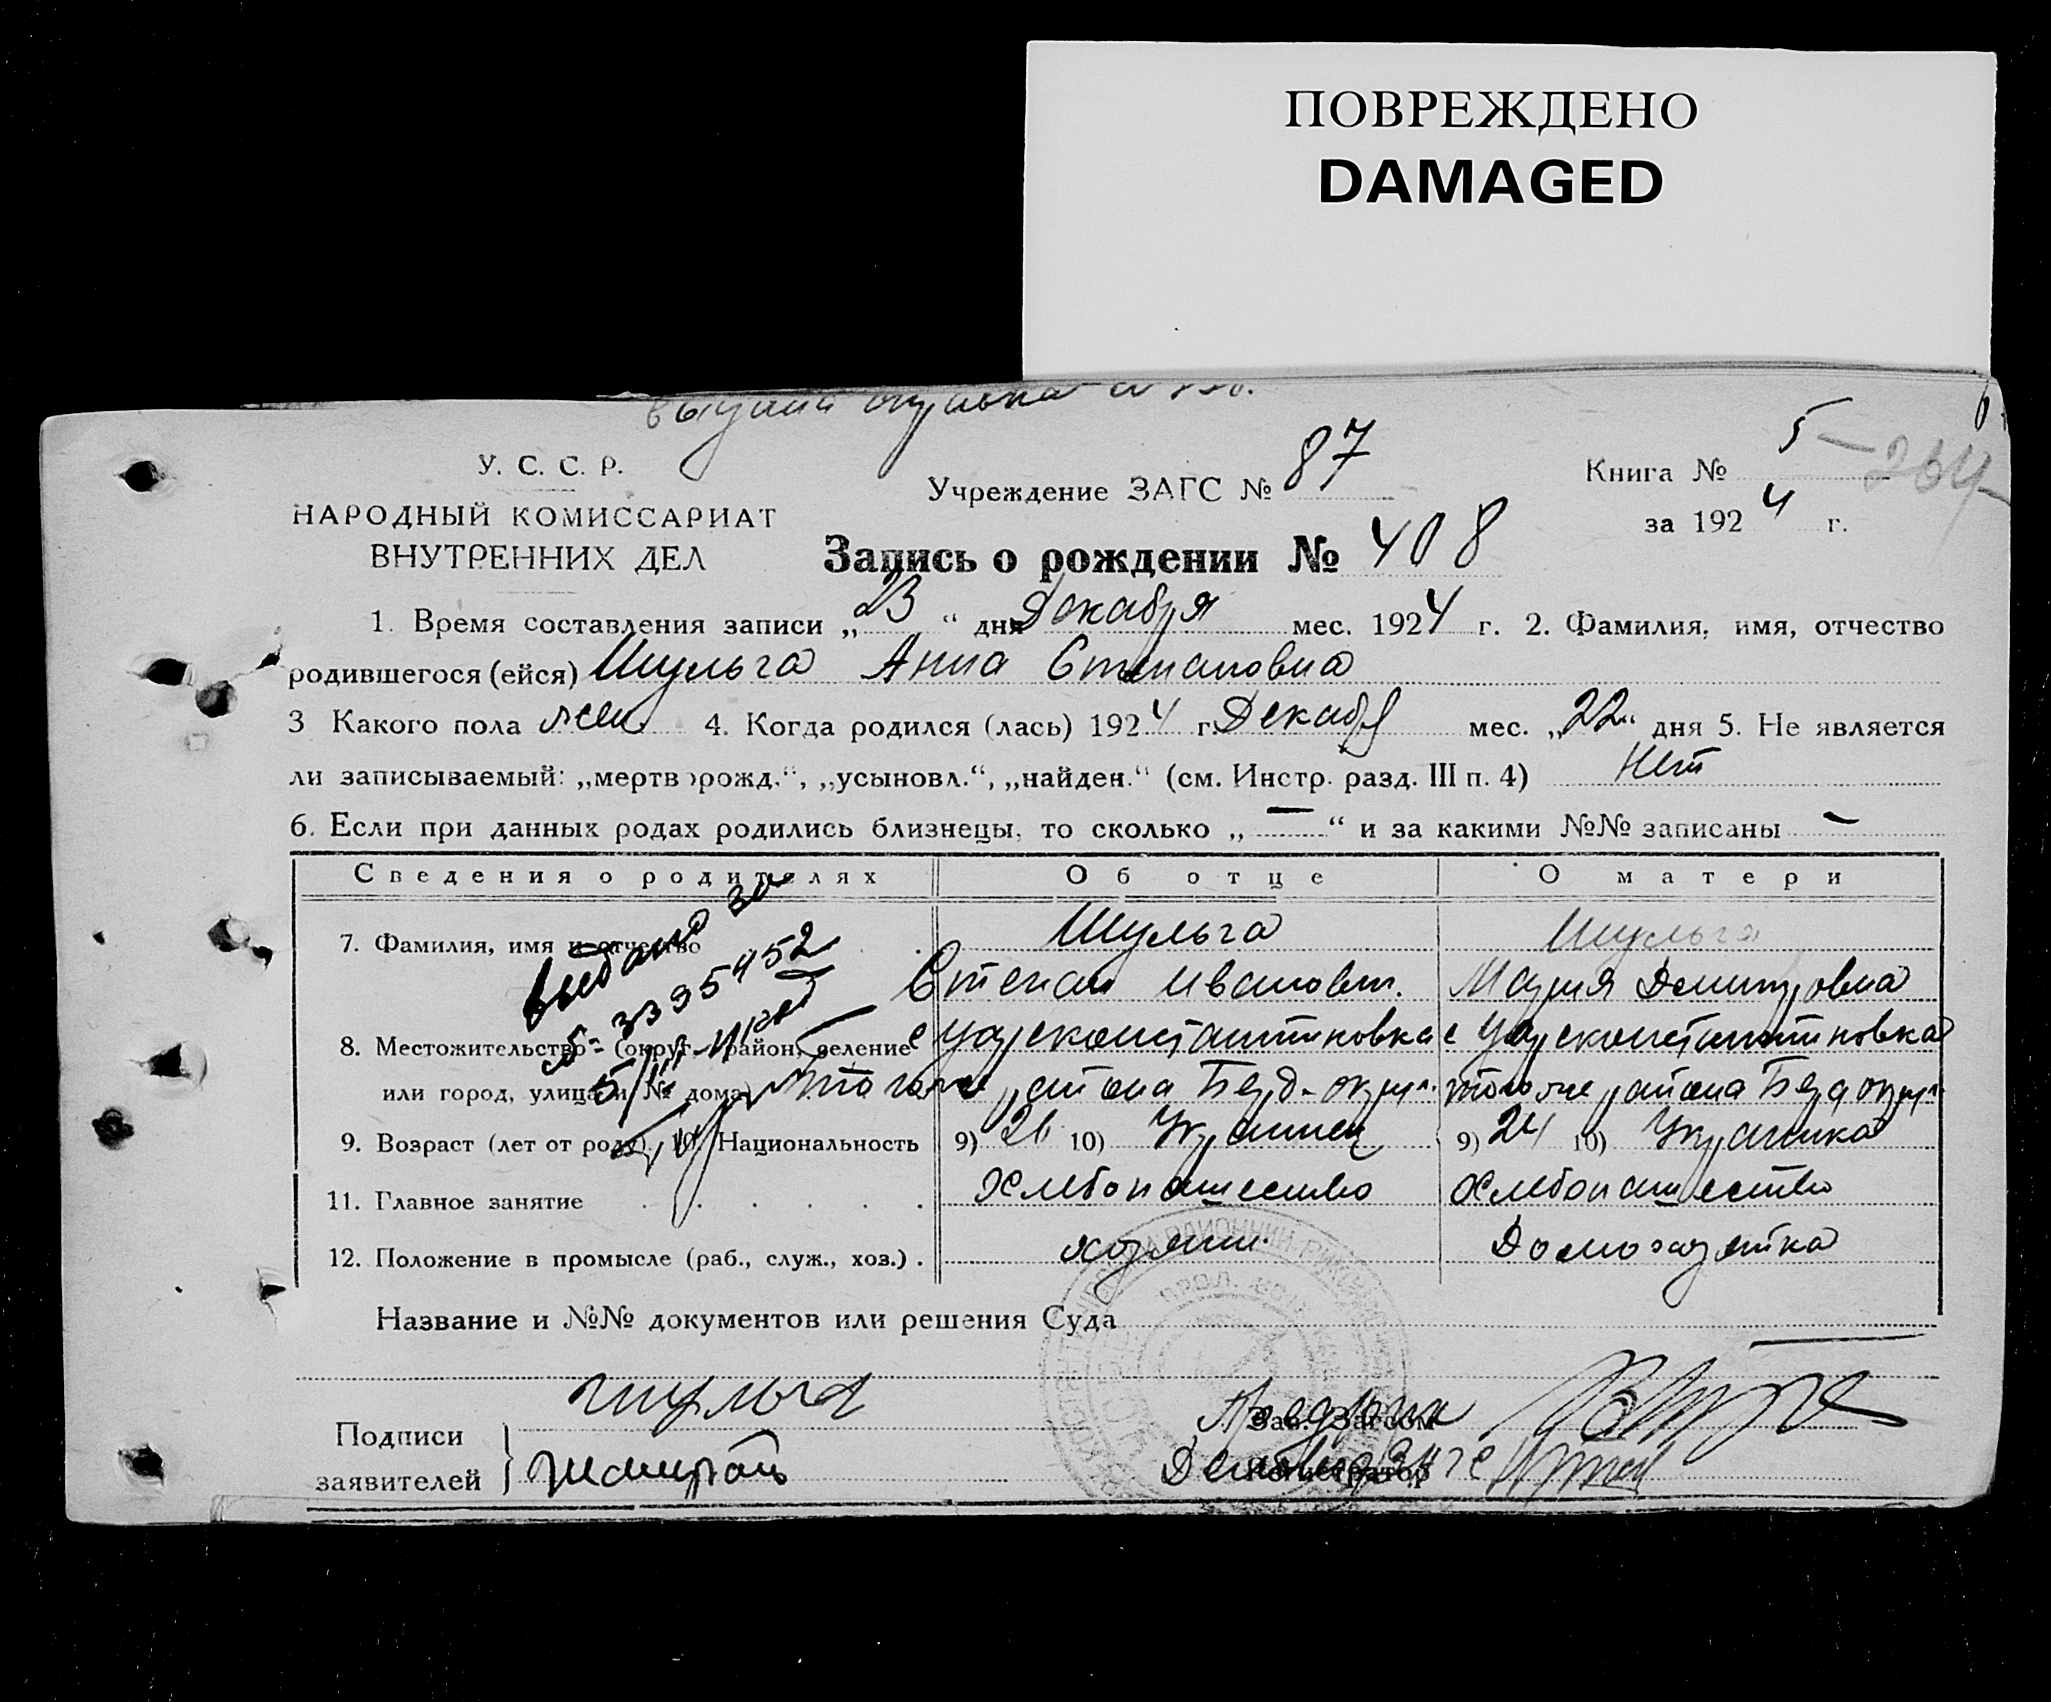 ПОВРЕЖДЕНО
DAMAGED
У. С. С. Р.
НАРОДНЫЙ КОМИССАРИАТ
ВНУТРЕННИХ ДЕЛ
Учреждение ЗАГС № 87
Книга № 5
за 1924 г.
Запись о рождении № 408
1. Время составления записи „23“ дня Декабря мес. 1924 г. 2. Фамилия, имя, отчество
родившегося (ейся) Шульга Анна Степановна
3 Какого пола жен 4. Когда родился (лась) 1924 г. Декабр мес. „22“ дня 5. Не является
ли записываемый: „мертворожд.“, „усыновл.“, „найден.“ (см. Инстр. разд. III п. 4) Нет
6. Если при данных родах родились близнецы, то сколько „—“ и за какими №№ записаны —
Сведения о родителях Об отце О матери
7. Фамилия, имя и отчество Шульга Шульга
Степан Иванович. Мария Демитровна
8. Местожительство (округ, район, селение с Цареконстантиновка с Цареконстантиновка
или город, улица и № дома) того же района Берд. округ. того же района Берд округ.
9. Возраст (лет от роду). 10. Национальность 9) 26 10) Украинец 9) 24 10) Украинка
11. Главное занятие Хлебопашество Хлебопашество
12. Положение в промысле (раб., служ., хоз.) хозяин. Домохозяйка
выдано
3395452
Название и №№ документов или решения Суда
Подписи
заявителей
Шульга
Зав. Загсом
Регистратор